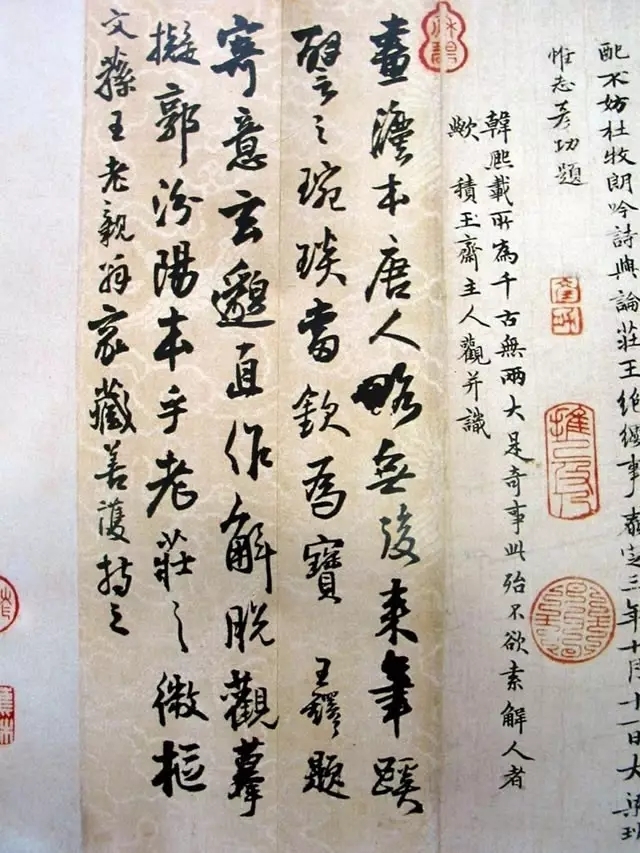 配不妨杜牧朗吟詩與論莊王絕纓事泰定三年十月十一日大梁班
惟志彥功題
韓熙載所為千古無兩大是奇事此殆不欲索解人者
歟 積玉齋主人觀并識
畫灋本唐人略無後来筆蹊
譬之琬琰當欽為寶 王鐸題
寄意玄邈直作解脫觀摹
擬郭汾陽本乎老莊之微樞
文蓀王老親翁家藏善護持之